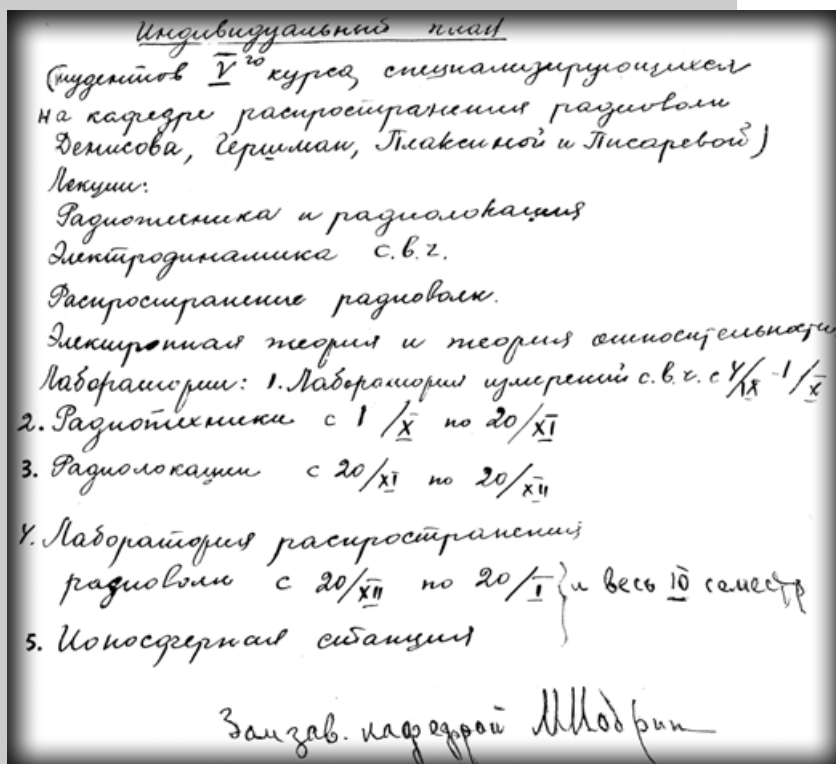 Индивидуальный план
(студентов V го курса, специализирующихся
на кафедре распространения радиоволн
Денисова, Гершман, Плаксиной и Писаревой)
Лекции:
Радиотехника и радиолокация
Электродинамика с.в.ч.
Распространение радиоволн.
Электронная теория и теория относительности
Лаборатории: 1. Лаборатория измерений с.в.ч. с 4/IX - 1/X
2. Радиотехники с 1/X по 20/XI
3. Радиолокации с 20/XI по 20/XII
4. Лаборатория распространения
радиоволн с 20/XII по 20/I } и весь семестр
5. Ионосферная станция
Замзав. кафедрой